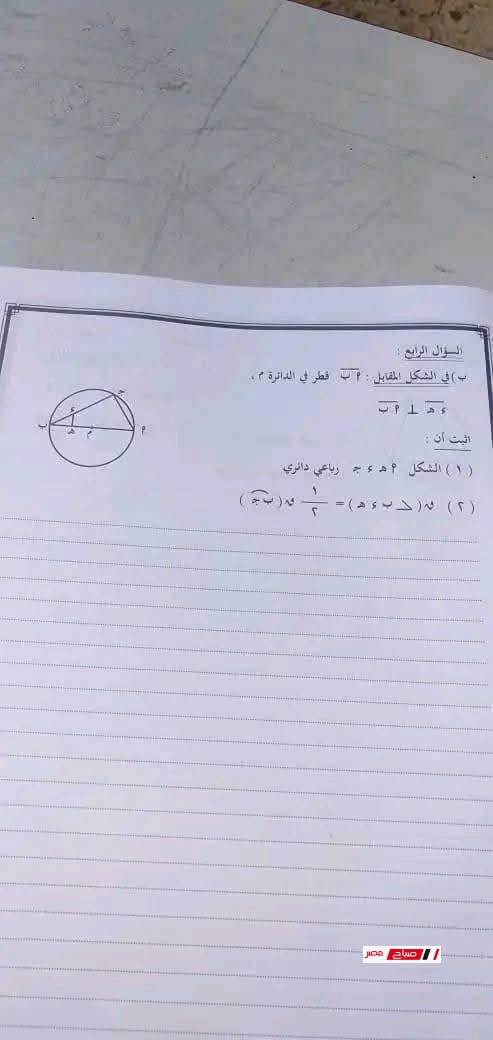 السؤال الرابع :
ب) في الشكل المقابل : م ب قطر في الدائرة م ،
ء هـ ⊥ م ب
اثبت أن :
( ١ ) الشكل م هـ ء جـ رباعي دائري
( ٢ ) ق ( > ب ء هـ ) = ١/٢ ق ( ب جـ )
جـ
ء
ب
هـ
م
م
صباح مصر